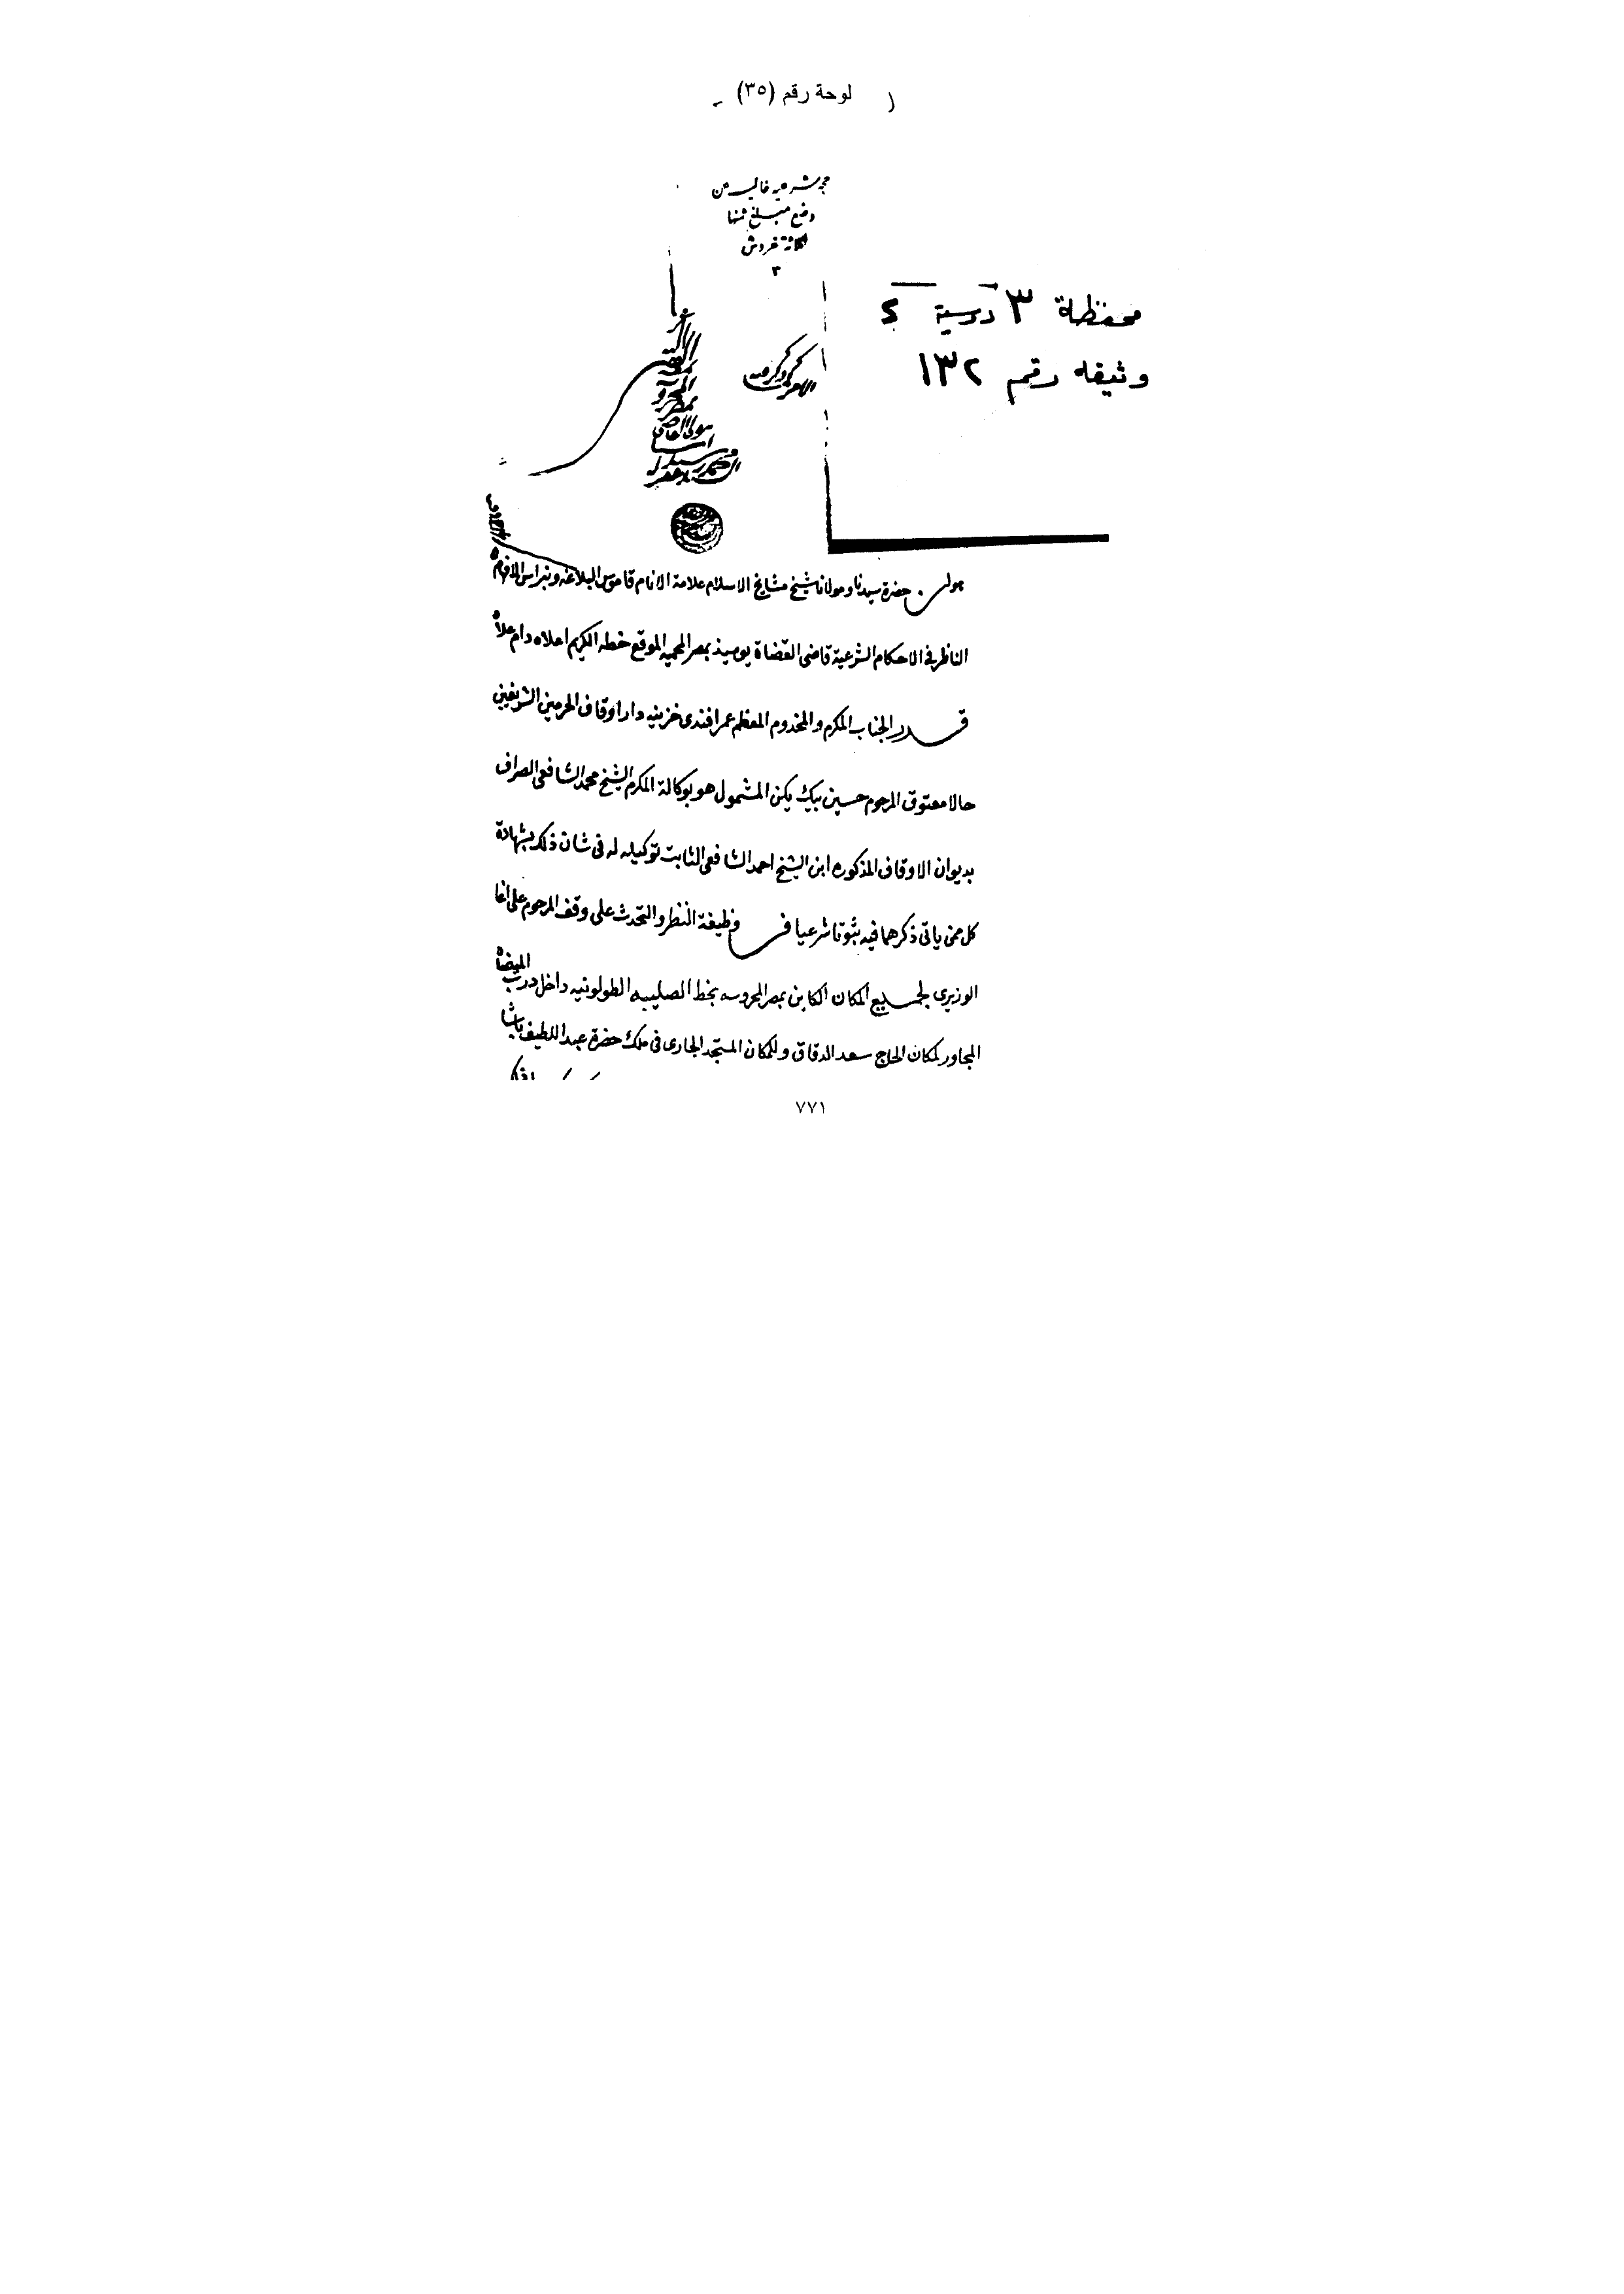 لوحة رقم (٣٥)
حجه شرعيه خاليه من
وضع مبلغ ثمنها
ثلاثة غروش
٣
محفظة ٣ دوسية ٤
وثيقه رقم ١٣٢
الامر كما ذكر فيه
الفقير
المحروسه
بمصر
مولى القاضى
السيد محمد
حضرة سيدنا ومولانا شيخ مشايخ الاسلام علامة الانام قاموس البلاغه ونبراس الافهام
الناظر فى الاحكام الشرعية قاضى القضاة يوميذ بمصر المحميه الموقع خطه الكريم اعلاه دام علاه
قرر الجناب المكرم والمخدوم المعظم عمر افندى خزينه دار اوقاف الحرمين الشريفين
حالا معتوق المرحوم حسين بيك يكن المشمول هو بوكالة المكرم الشيخ محمد الشافعى الصراف
بديوان الاوقاف المذكوره ابن الشيخ احمد الشافعى الثابت توكيله له فى شان ذلك بشهادة
كل ممن ياتى ذكرهما فيه ثبوتا شرعيا فى وظيفة النظر والتحدث على وقف المرحوم على اغا
الوزيرى لجميع المكان الكاين بمصر المحروسه بخط الصليبه الطولونيه داخل درب الميضاه
المجاور لمكان الحاج سعد الدقاق وللمكان المستجد الجارى فى ملك حضرة عبد اللطيف باشا
٧٧١